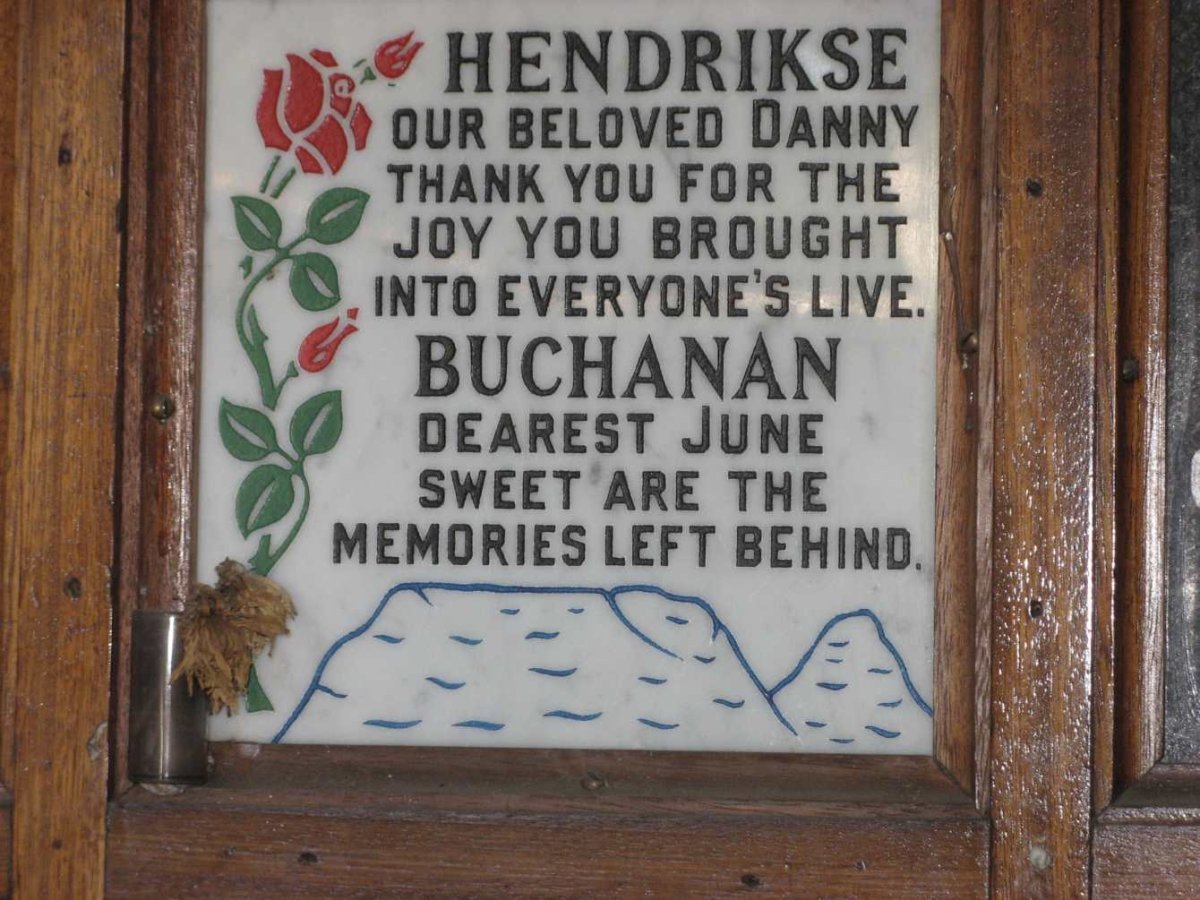 HENDRIKSE
OUR BELOVED DANNY
THANK YOU FOR THE
JOY YOU BROUGHT
INTO EVERYONE'S LIVE.
BUCHANAN
DEAREST JUNE
SWEET ARE THE
MEMORIES LEFT BEHIND.